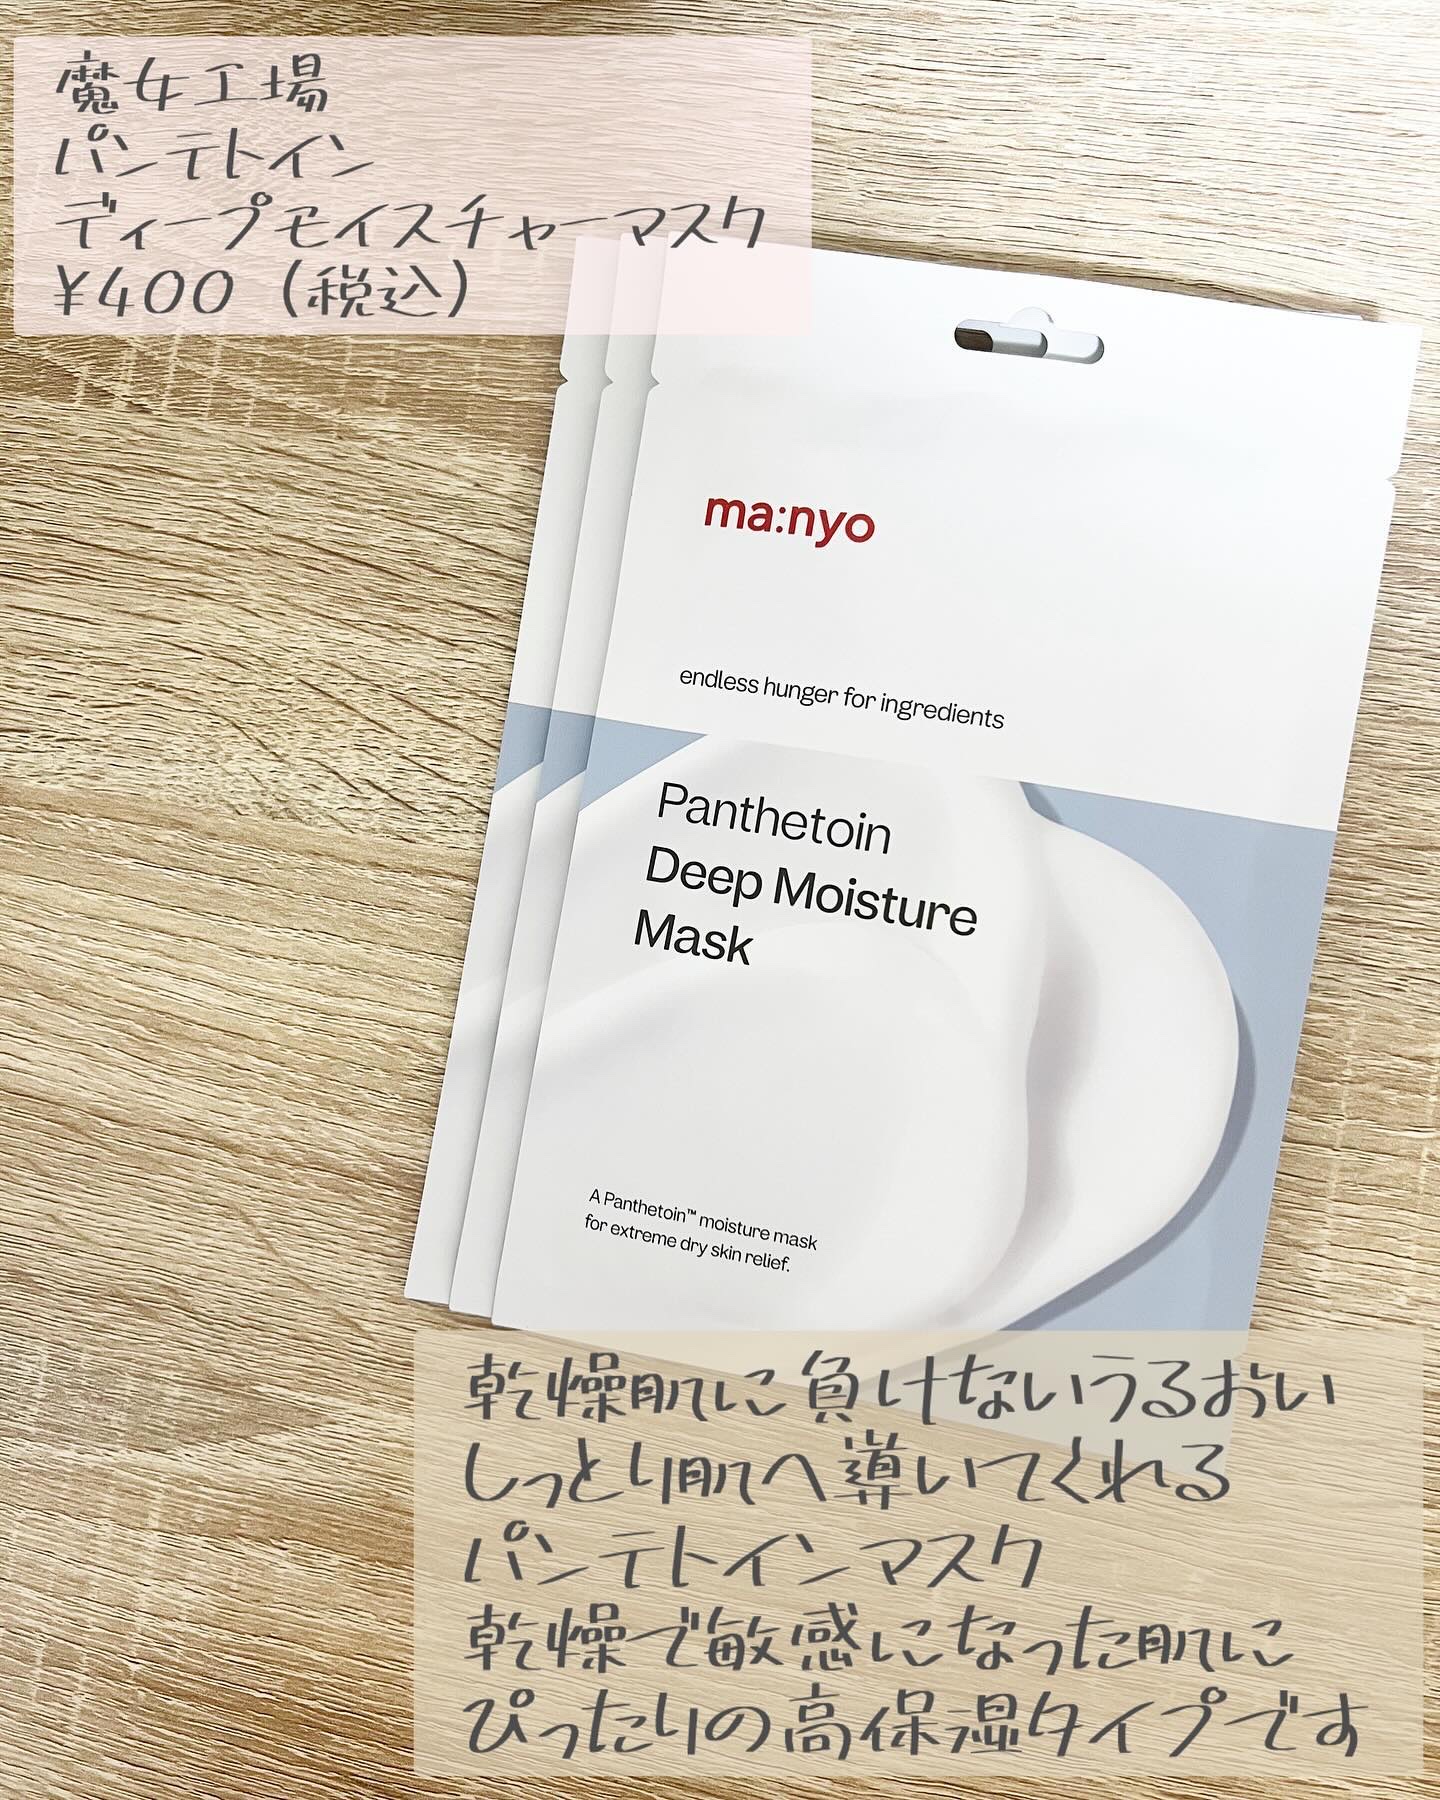 魔女工場
パンテトイン
ディープモイスチャーマスク
¥400（税込）
ma:nyo
endless hunger for ingredients
Panthetoin
Deep Moisture
Mask
A Panthetoin™ moisture mask
for extreme dry skin relief.
乾燥肌に負けないうるおい
しっとり肌へ導いてくれる
パンテトインマスク
乾燥で敏感になった肌に
ぴったりの高保湿タイプです